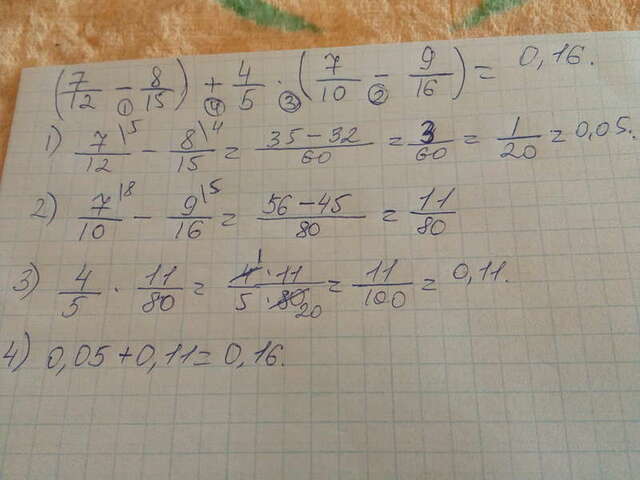 (7/12 - 8/15) + 4/5 · (7/10 - 9/16) = 0,16.
① ④ ③ ②
1) 7\5/12 - 8\4/15 = 35-32/60 = 3/60 = 1/20 = 0,05.
2) 7\8/10 - 9\5/16 = 56-45/80 = 11/80
3) 4/5 · 11/80 = 4 1 · 11/5 · 80 20 = 11/100 = 0,11.
4) 0,05 + 0,11 = 0,16.